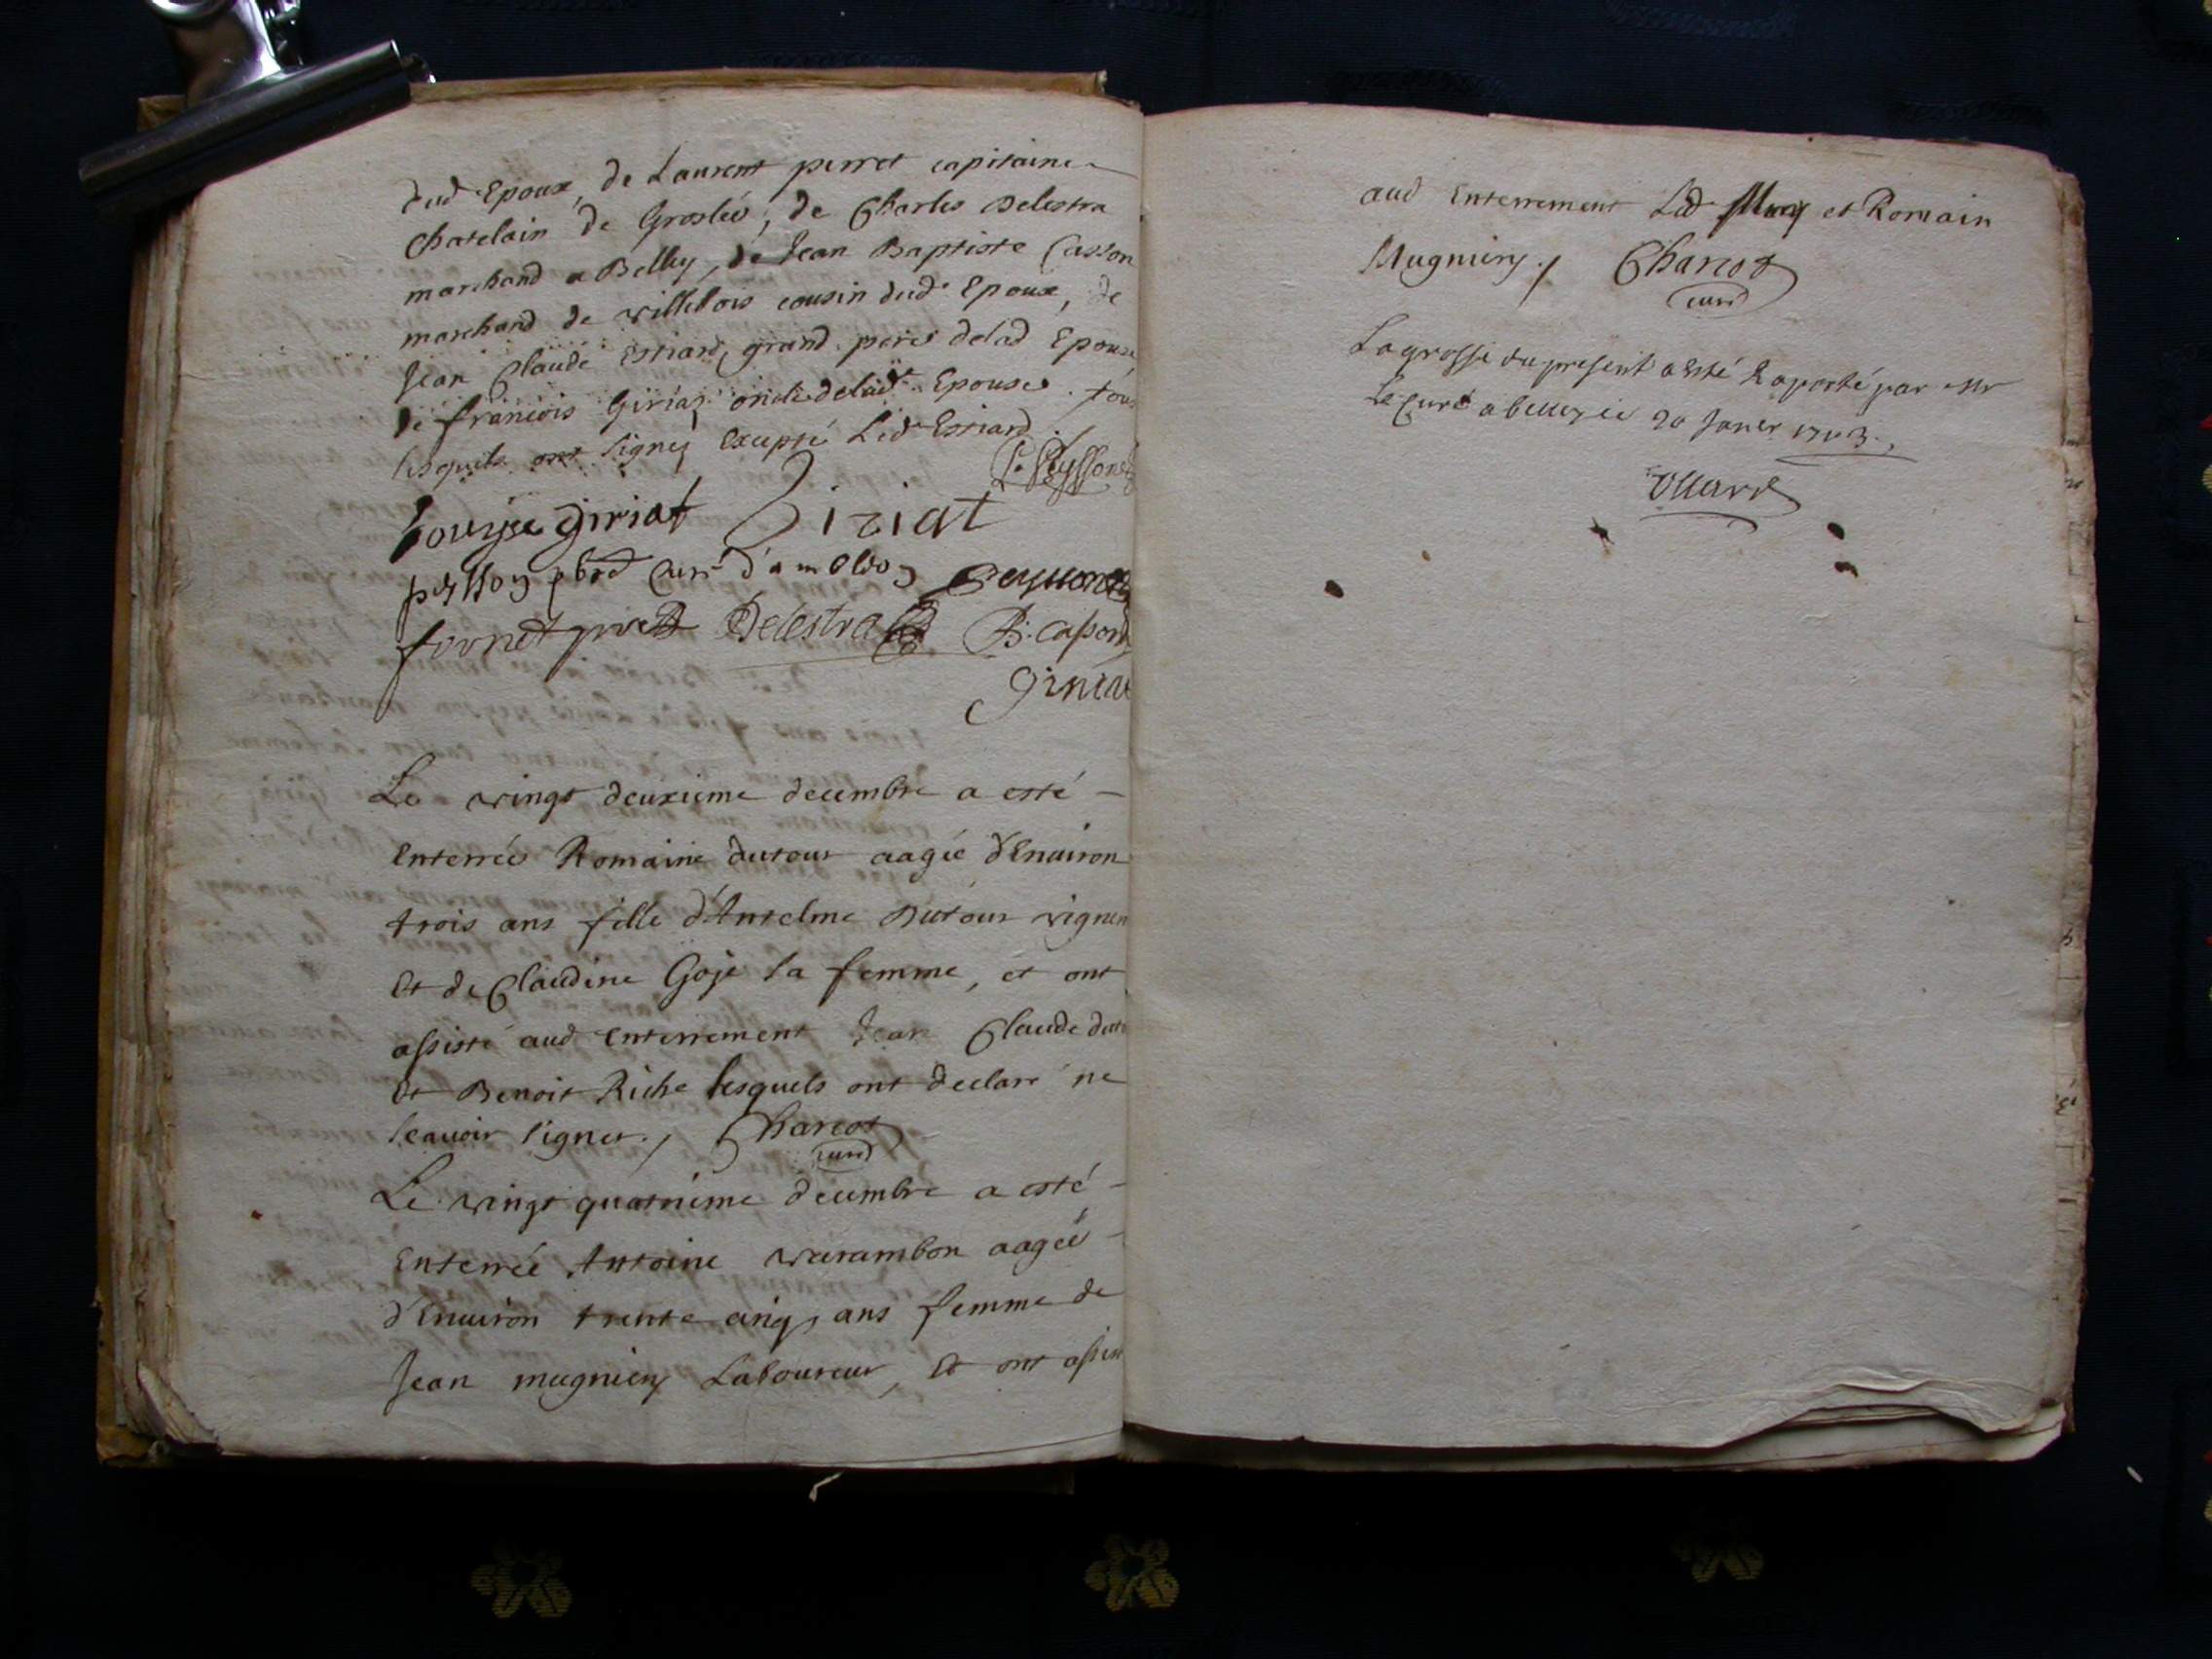 dud Epoux, de Laurent perret capitaine
chatelain de Groslée, de Charles Delestra
marchand a Belley, de Jean Baptiste Casson
marchand de villebois cousin dud Epoux, de
Jean Claude Estiard, grand pere delad Epouse
de francois Giriat oncle delad Epouse. tous
lesquels ont signez excepté Led Estiard
Louyse giriat Giriat
peysson curé d'ambleo
fornet Delestra B. Cason
giriat
Le vingt deuxieme decembre a esté
Enterrée Romaine dutour aagée d'Enuiron
trois ans fille d'Antelme Dutour vigner
Et de Claudine Goje sa femme, et ont
assisté aud Enterrement Jean Claude dut
Et Benoit Riche lesquels ont declaré ne
scauoir signer./ Charcot
curé
Le vingt quatrieme decembre a esté
Enterrée Antoine varambon aagée
d'Enuiron trente cinq ans femme de
Jean mugniery Laboureur, Et ont assis
aud Enterrement Led et Romain
Mugniery./ Charcot
curé
La grosse du present a esté Raporté par Mr
Le Curé a belley ce 20 Janer 1703.